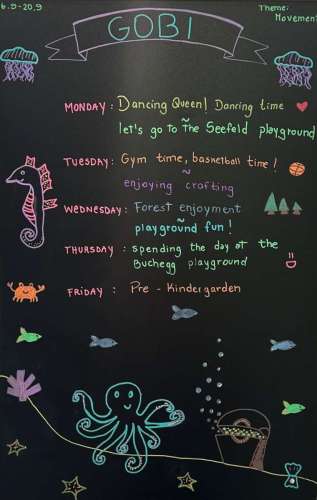 6.9-20.9
Theme:
Movement
GOBI
MONDAY : Dancing Queen! Dancing time
~
let's go to the Seefeld playground
TUESDAY: Gym time, basketball time!
~
enjoying crafting
WEDNESDAY: Forest enjoyment
~
playground fun!
THURSDAY : spending the day at the
Buchegg playground
FRIDAY : Pre - Kindergarden